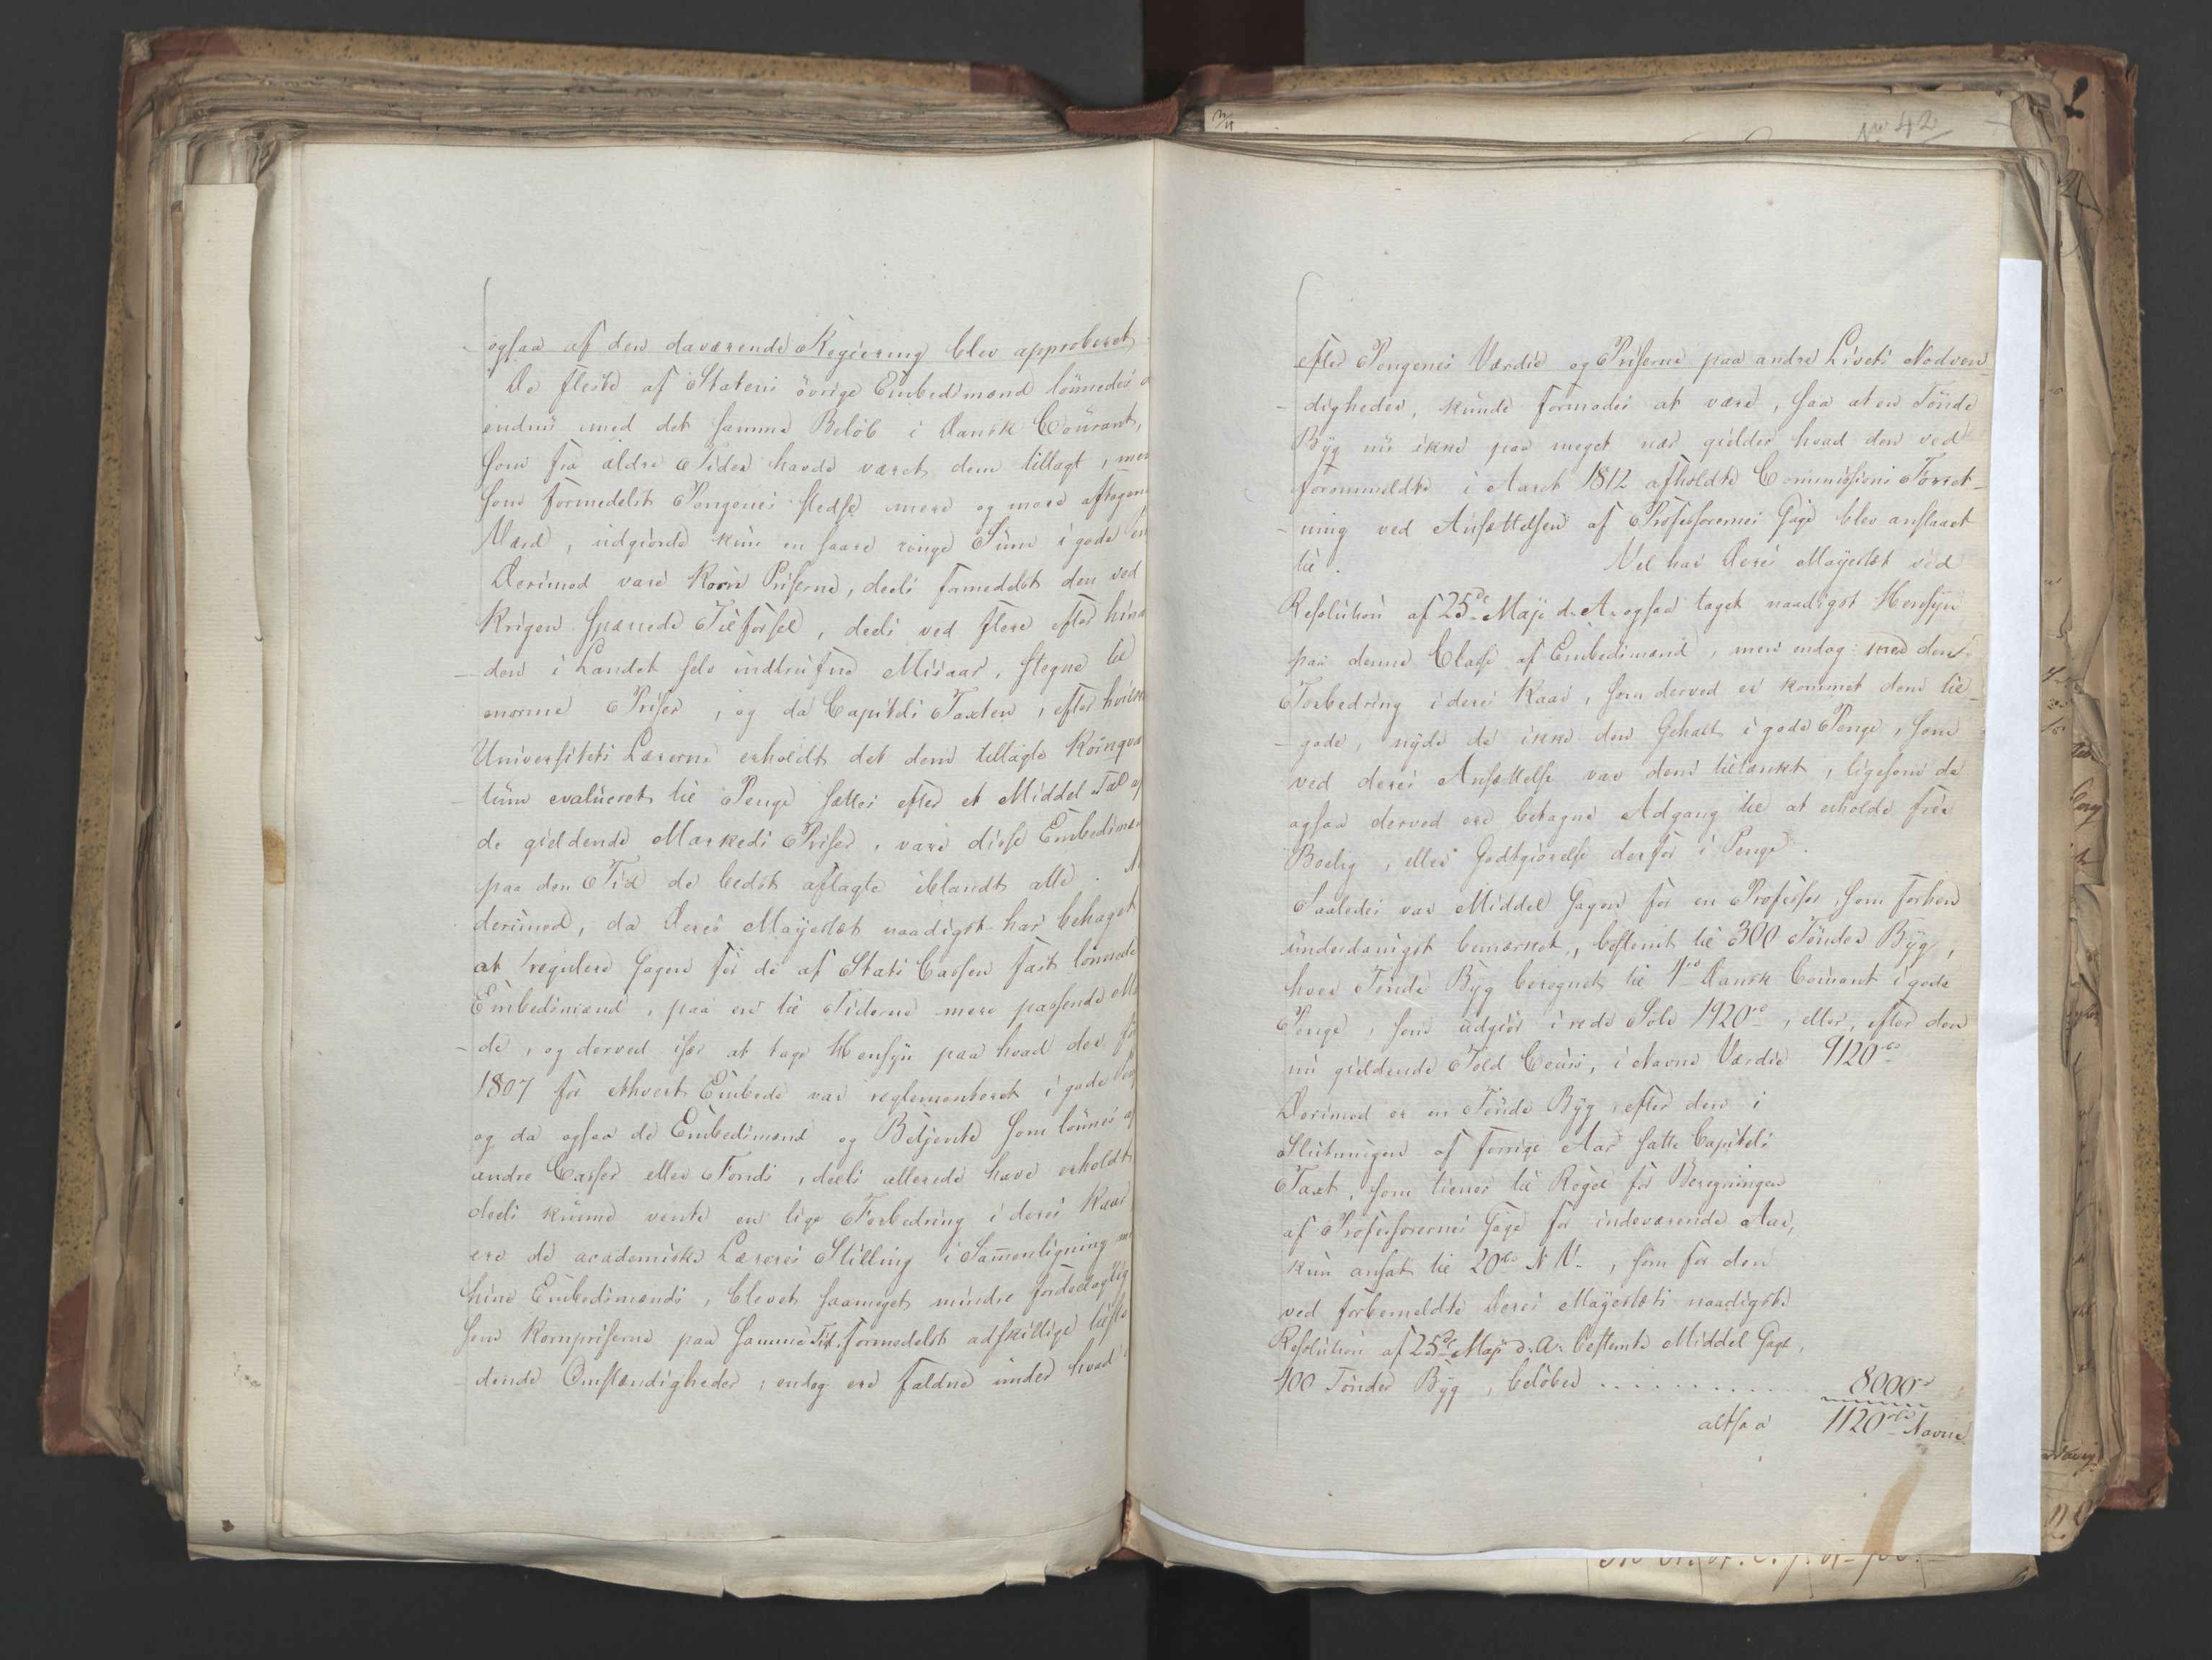 No 42
ogsaa af den daværende Regiering blev approberet
De fleste af Statens övrige Embedsmænd lönnedes
endnu med det samme Belöb i Dansk Courant,
som fra ældre Tider havde været dem tillagt, men
som formedelst Pengenes stedse mere og mere aftagende
Værd, udgiorde kun en saare ringe Sum i gode
Derimod vare Korn Priserne, deels formedelst den ved
Krigen spærrede Tilförsel, deels ved flere efter hinan
den i Landet selv indtrufne Misaar, stegne til
enorme Priser, og da Capitels Taxten, efter hvilken
Universitets Lærerne erholdt det dem tillagte Kornqvan
tum evalueret til Penge sættes efter et Middel Tal af
de gieldende Markeds Priser, vare disse Embedsmæn
paa den Tid de bedst aflagte iblandt alle.
derimod, da Deres Mayestæt naadigst har behaget
at regulere Gagen for de af Stats Cassen fast lönnede
Embedsmænd, paa en til Tiderne mere passende Maa
de, og derved især at tage Hensyn paa hvad der för
1807 for ethvert Embede var reglementeret i gode
og da ogsaa de Embedsmænd og Betjente som lönnes af
andre Casser eller Fonds, deels allerede have erholdt
deels kunne vente en lige Forbedring i deres Kaar
ere de academiske Læreres Stilling i Samenligning
hine Embedsmænds, blevet saameget mindre fordeelagtig
som Kornpriserne paa samme Tid, formedelst adskillige tilstö
dende Omstændigheder, endog ere faldne under hvad
efter Pengenes Værdie og Priserne paa andre Livets Nödven
digheder, kunde formodes at være, saa at en Tönde
Byg nu ikke paa meget nær gielder hvad den ved
forommeldte i Aaret 1812 afholdte Commissions Forret-
ning ved Ansættelsen af Professorernes Gage blev anslaaet
til. Vel har Deres Mayestæt ved
Resolution af 25de Maji d. A. ogsaa taget naadigst Hensyn
paa denne Classe af Embedsmænd, men endog med den
Forbedring i deres Kaar, som derved er kommet dem til
gode, nyde de ikke den Gehalt i gode Penge, som
ved deres Ansættelse var dem tiltænkt, ligesom de
ogsaa derved ere betagne Adgang til at erholde frie
Boelig, eller Godtgiörelse derfor i Penge.
Saaledes var Middel Gagen for en Professor, som forhen
underdanigst bemærket, bestemt til 300 Tönder Byg,
hver Tönde Byg beregnet til 4rd Dansk Courant i gode
Penge, som udgiör i rede Sölv 1920rd, eller, efter den
nu gieldende Told Cours, i Navne Værdie 9120rd
Derimod er en Tönde Byg, efter den i
Slutningen af forrige Aar satte Capitels
Taxt, som tiener til Regel for Beregningen
af Professorernes Gage for indeværende Aar,
kun ansat til 20rd N. V., som for den
ved forbemeldte Deres Mayestæts naadigste
Resolution af 25de Maji d. A. bestemte Middel Gage,
400 Tönder Byg, belöber . . . . . . . . . . 8000rd
altsaa 1120rd Navne